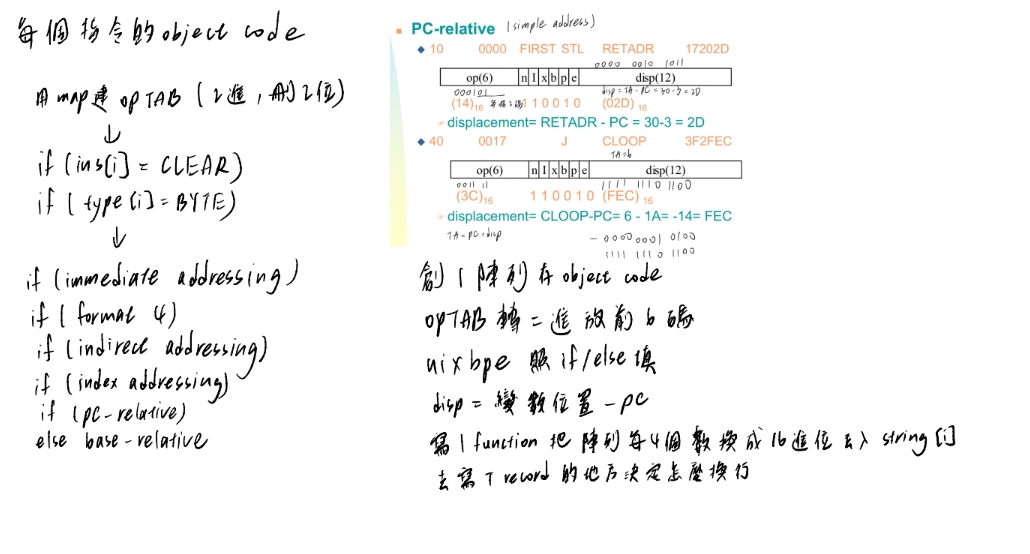 每個指令的object code
用map建 OPTAB (2進,刪2位)
↓
if (ins[i] = CLEAR)
if (type[i] = BYTE)
↓
if (immediate addressing)
if (format 4)
if (indirect addressing)
if (index addressing)
if (pc-relative)
else base-relative
PC-relative (simple address)
10 0000 FIRST STL RETADR 17202D
0000 0010 1011
op(6) n I x b p e disp(12)
000101 disp = TA - PC = 30-3 = 2D
(14)16 1 1 0 0 1 0 (02D) 16
displacement= RETADR - PC = 30-3 = 2D
40 0017 J CLOOP 3F2FEC
TA=6
op(6) n I x b p e disp(12)
0011 11 1111 1110 1100
(3C)16 1 1 0 0 1 0 (FEC) 16
displacement= CLOOP-PC= 6 - 1A= -14= FEC
TA = PC + disp
- 0000 0001 0100
1111 1110 1100
創1陣列存object code
OPTAB轉二進放前6碼
nixbpe 照if/else填
disp = 變數位置 - PC
寫1 function 把陣列每4個數換成16進位丟入string[i]
去寫T record的地方決定怎麼換行